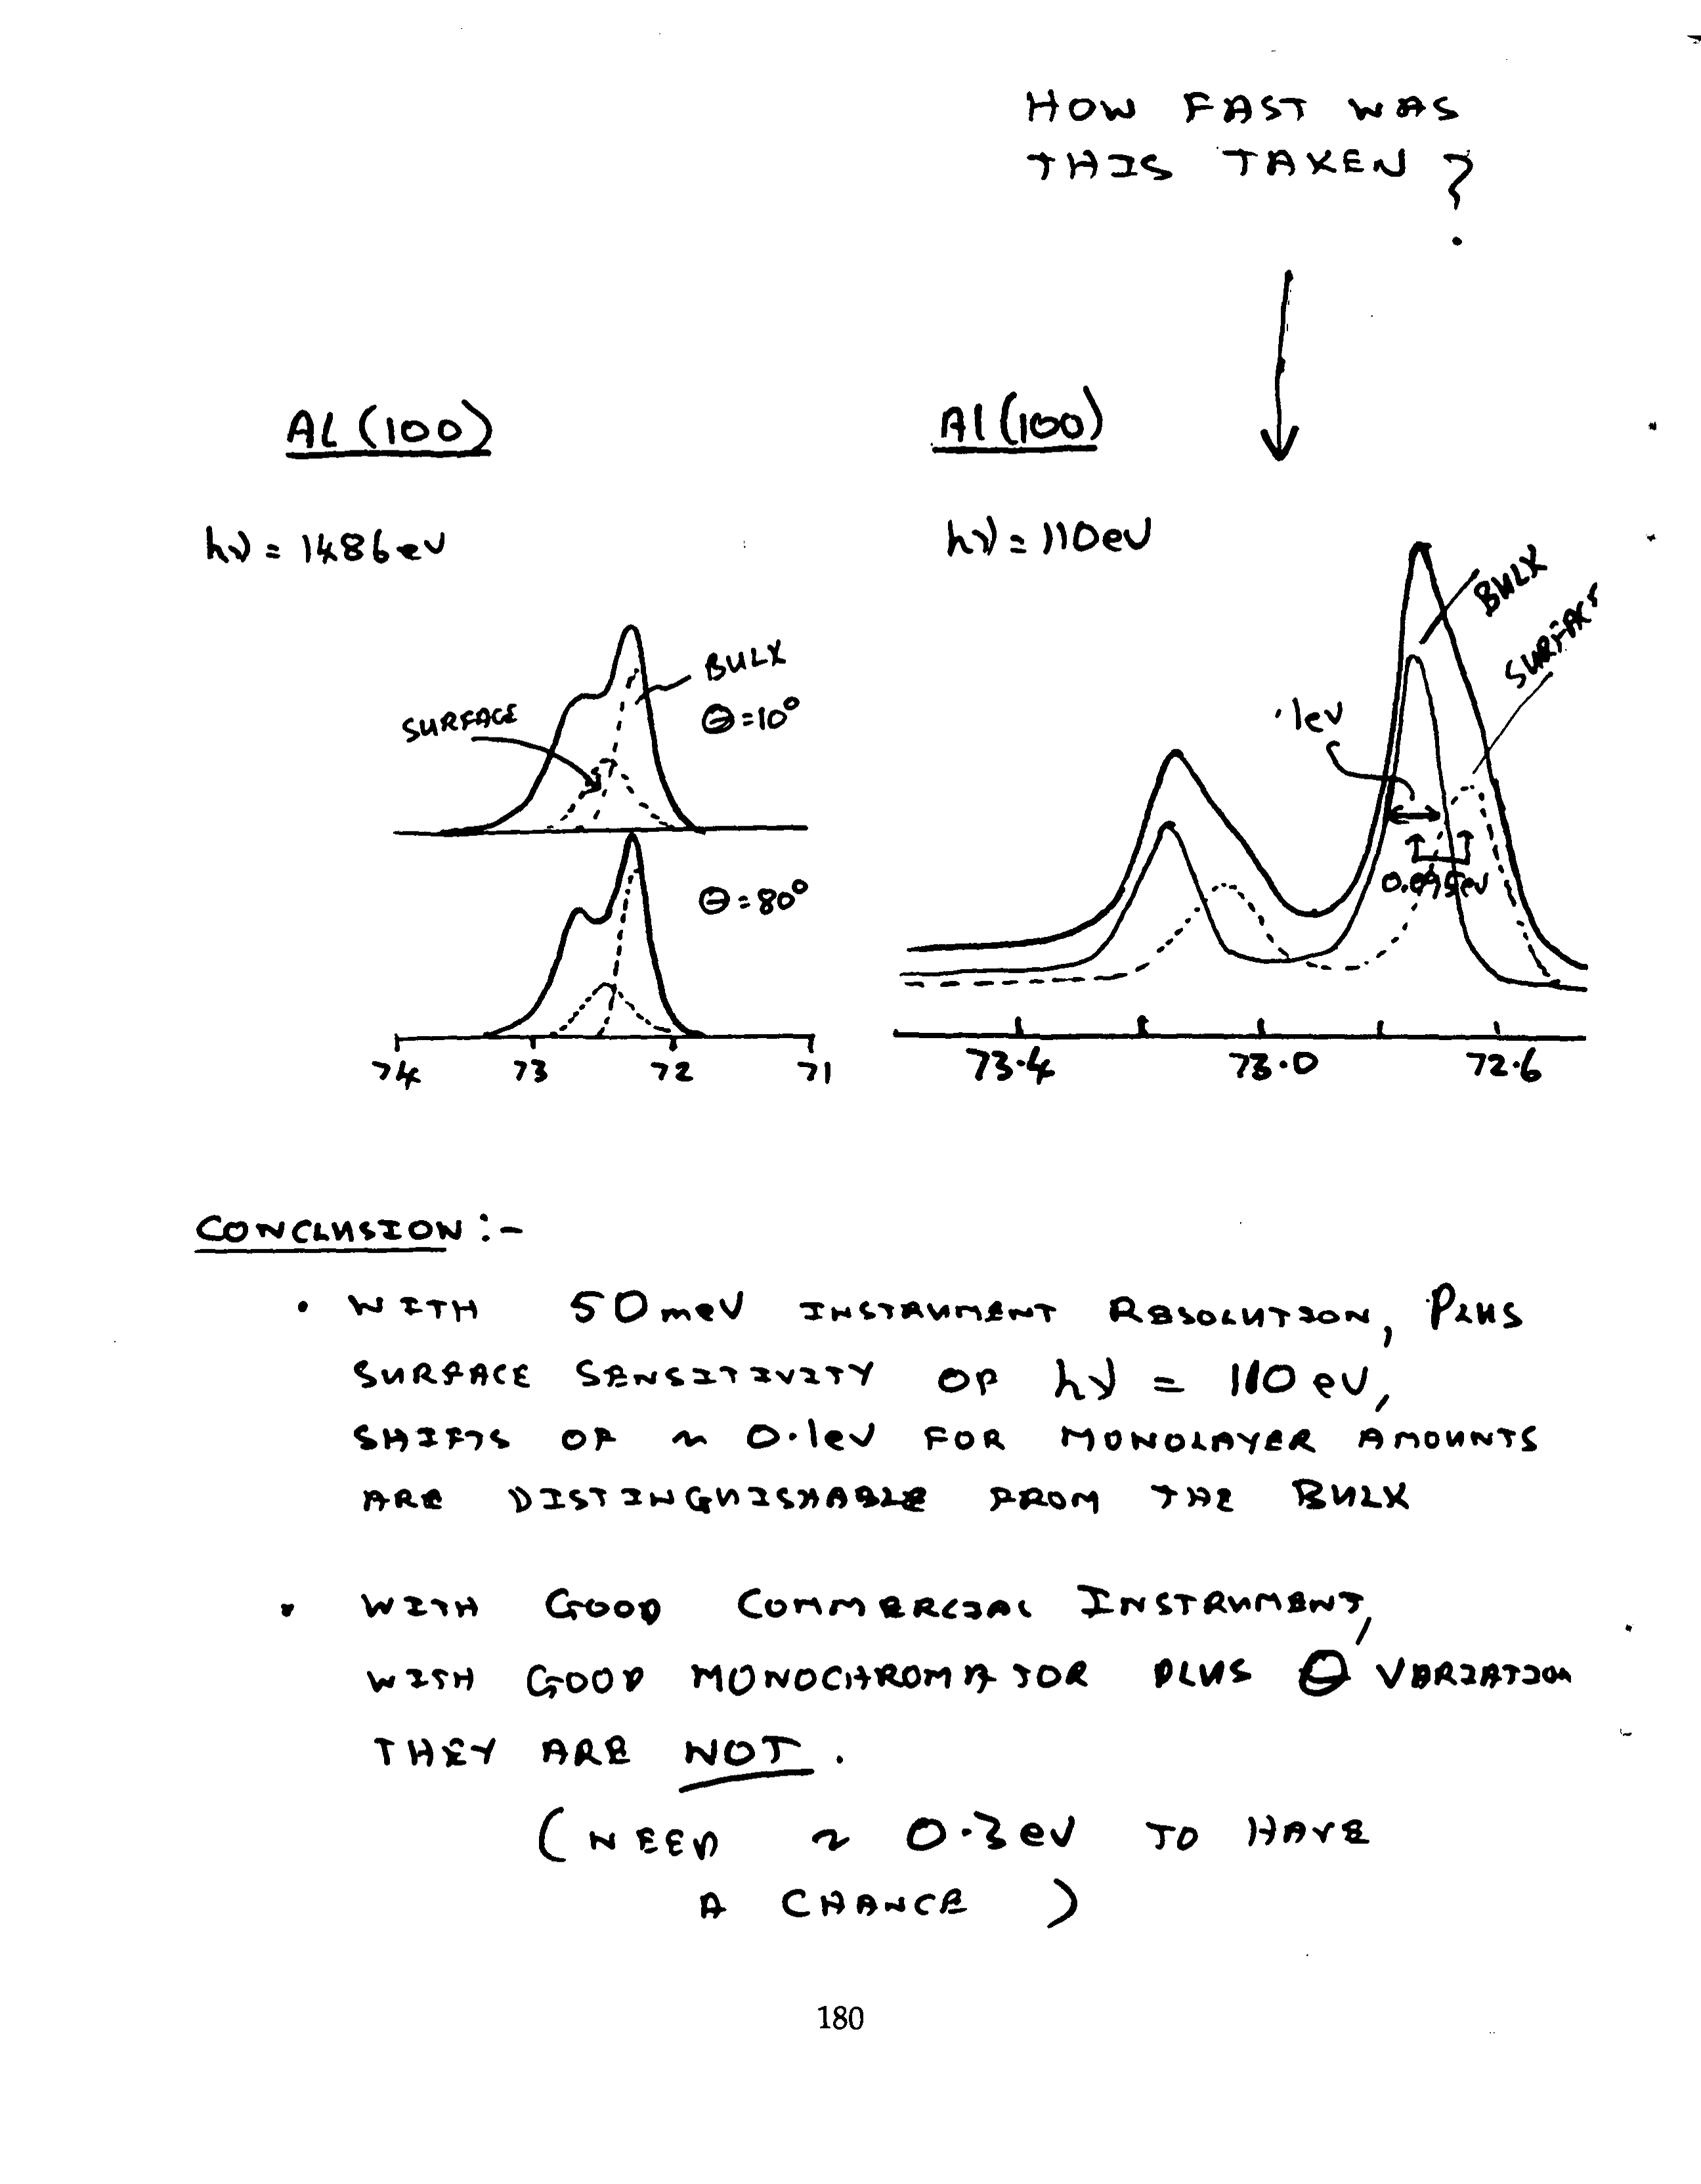 HOW FAST WAS
THIS TAKEN ?
AL (100)
hν = 1486 eV
SURFACE
BULK
Θ = 10°
Θ = 80°
74 73 72 71
Al (100)
hν = 110 eV
BULK
SURFACE
.1eV
0.095eV
73.4 73.0 72.6
CONCLUSION :-
• WITH 50 meV INSTRUMENT RESOLUTION, PLUS
SURFACE SENSITIVITY OF hν = 110 eV,
SHIFTS OF ~ 0.1eV FOR MONOLAYER AMOUNTS
ARE DISTINGUISHABLE FROM THE BULK
• WITH GOOD COMMERCIAL INSTRUMENT,
WITH GOOD MONOCHROMATOR PLUS Θ VARIATION
THEY ARE NOT .
(NEED ~ 0.3 eV TO HAVE
A CHANCE )
180